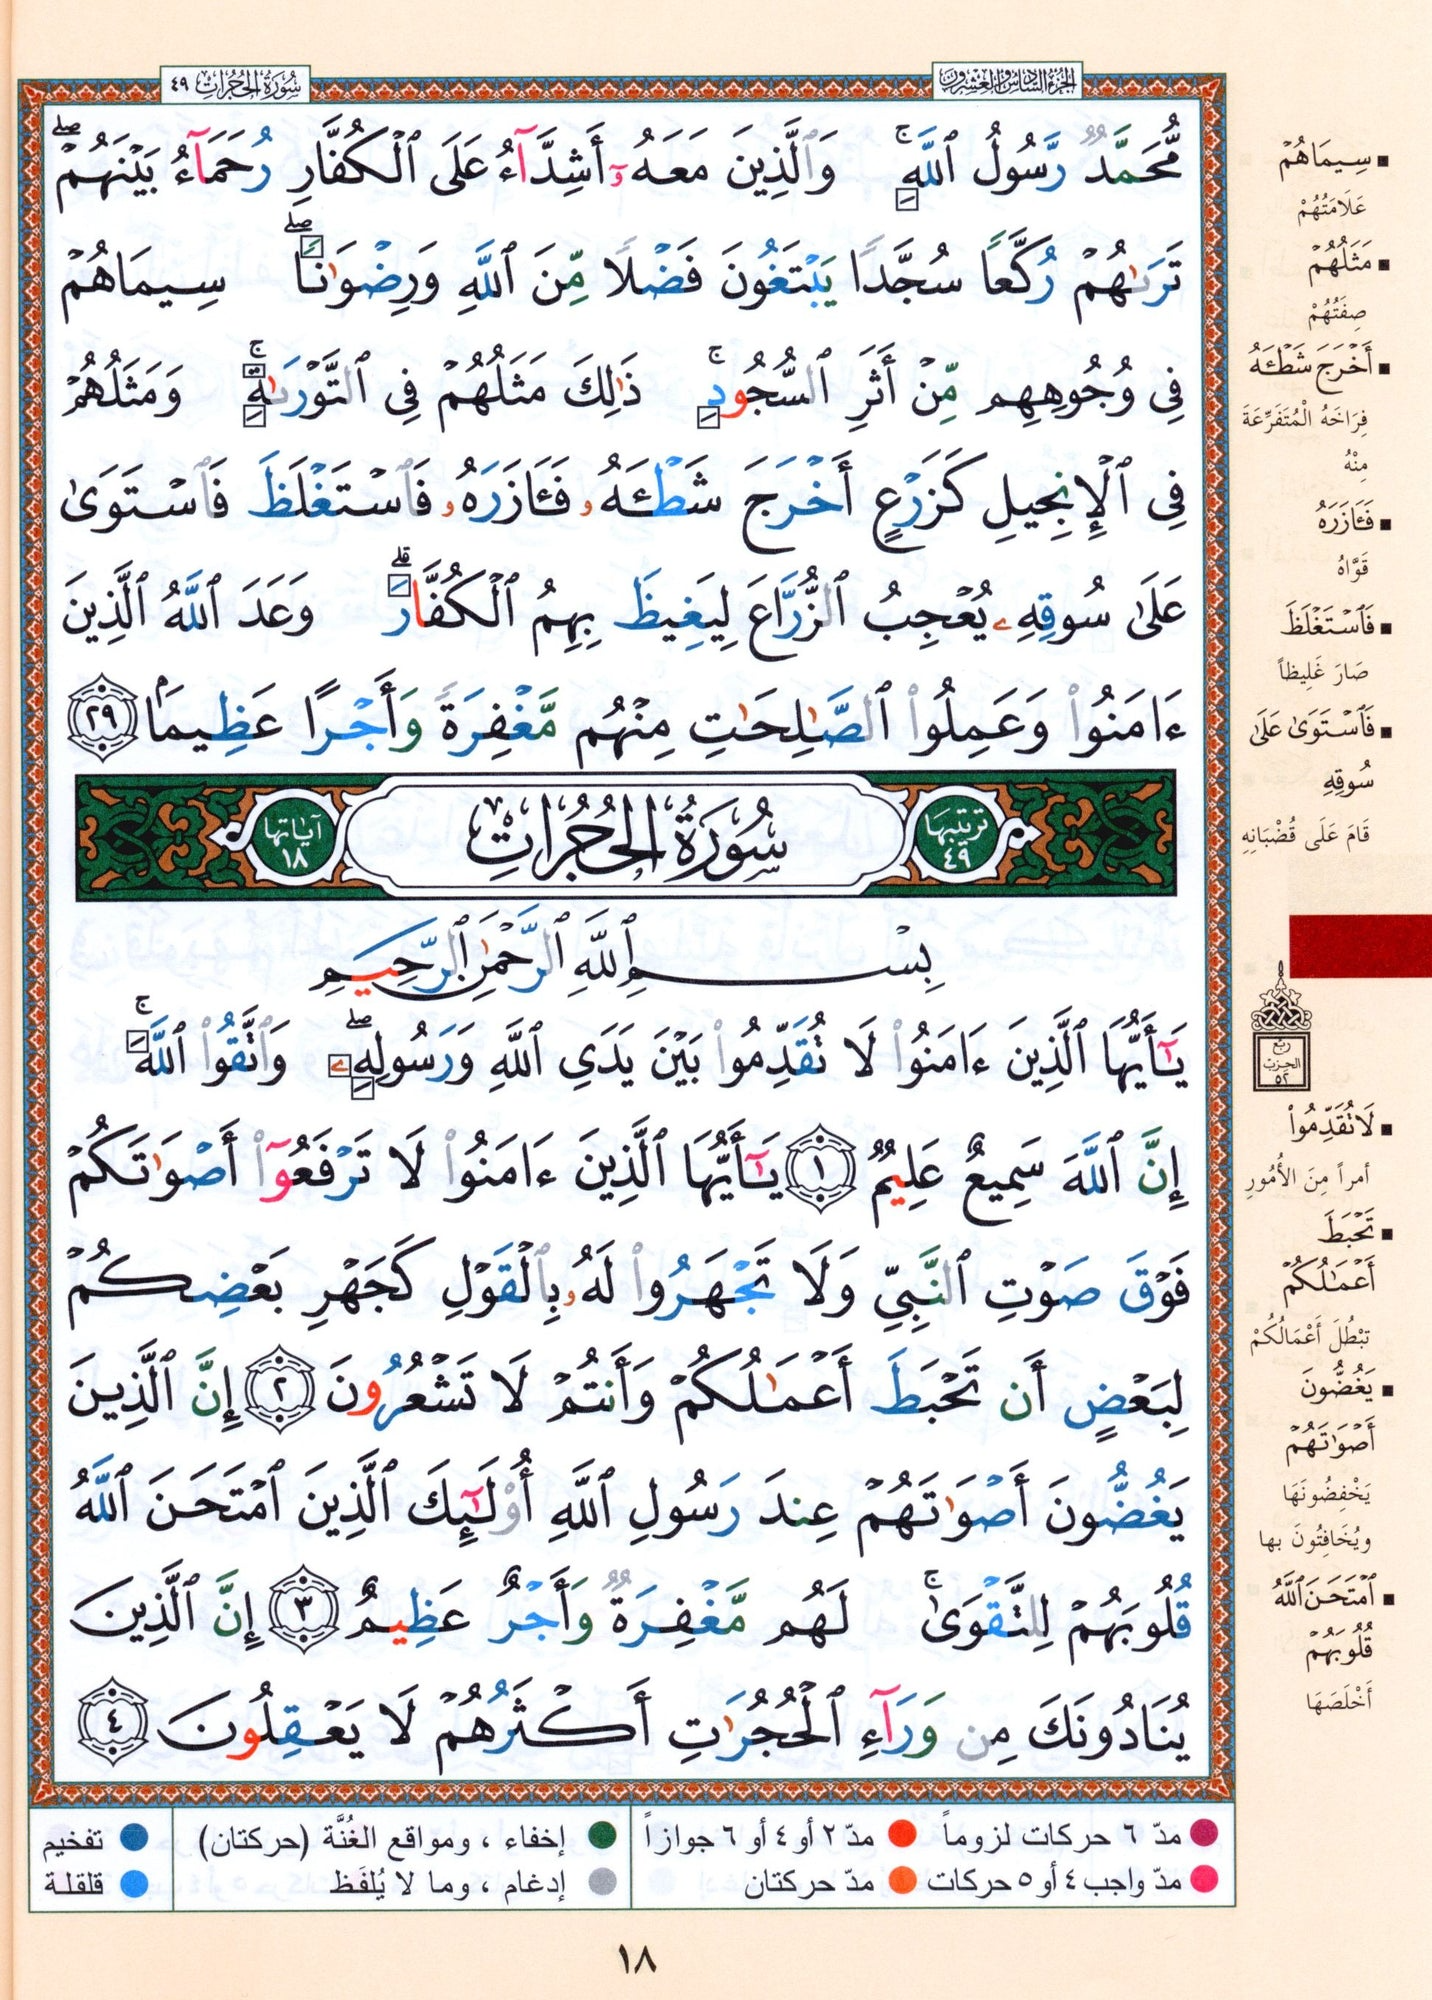 الجزء السادس والعشرون
سورة الحجرات ٤٩
مُّحَمَّدٌ رَّسُولُ ٱللَّهِۚ وَٱلَّذِينَ مَعَهُۥٓ أَشِدَّآءُ عَلَى ٱلْكُفَّارِ رُحَمَآءُ بَيْنَهُمْۖ
تَرَىٰهُمْ رُكَّعًا سُجَّدًا يَبْتَغُونَ فَضْلًا مِّنَ ٱللَّهِ وَرِضْوَٰنًاۖ سِيمَاهُمْ
فِى وُجُوهِهِم مِّنْ أَثَرِ ٱلسُّجُودِۚ ذَٰلِكَ مَثَلُهُمْ فِى ٱلتَّوْرَىٰةِۚ وَمَثَلُهُمْ
فِى ٱلْإِنجِيلِ كَزَرْعٍ أَخْرَجَ شَطْـَٔهُۥ فَـَٔازَرَهُۥ فَٱسْتَغْلَظَ فَٱسْتَوَىٰ
عَلَىٰ سُوقِهِۦ يُعْجِبُ ٱلزُّرَّاعَ لِيَغِيظَ بِهِمُ ٱلْكُفَّارَۗ وَعَدَ ٱللَّهُ ٱلَّذِينَ
ءَامَنُوا۟ وَعَمِلُوا۟ ٱلصَّٰلِحَٰتِ مِنْهُم مَّغْفِرَةً وَأَجْرًا عَظِيمًۢا ٢٩
ترتيبها ٤٩ سُورَةُ الحُجُرَاتِ آياتها ١٨
بِسْمِ ٱللَّهِ ٱلرَّحْمَٰنِ ٱلرَّحِيمِ
يَٰٓأَيُّهَا ٱلَّذِينَ ءَامَنُوا۟ لَا تُقَدِّمُوا۟ بَيْنَ يَدَىِ ٱللَّهِ وَرَسُولِهِۦۖ وَٱتَّقُوا۟ ٱللَّهَۚ
إِنَّ ٱللَّهَ سَمِيعٌ عَلِيمٌ ١ يَٰٓأَيُّهَا ٱلَّذِينَ ءَامَنُوا۟ لَا تَرْفَعُوٓا۟ أَصْوَٰتَكُمْ
فَوْقَ صَوْتِ ٱلنَّبِىِّ وَلَا تَجْهَرُوا۟ لَهُۥ بِٱلْقَوْلِ كَجَهْرِ بَعْضِكُمْ
لِبَعْضٍ أَن تَحْبَطَ أَعْمَٰلُكُمْ وَأَنتُمْ لَا تَشْعُرُونَ ٢ إِنَّ ٱلَّذِينَ
يَغُضُّونَ أَصْوَٰتَهُمْ عِندَ رَسُولِ ٱللَّهِ أُو۟لَٰٓئِكَ ٱلَّذِينَ ٱمْتَحَنَ ٱللَّهُ
قُلُوبَهُمْ لِلتَّقْوَىٰۚ لَهُم مَّغْفِرَةٌ وَأَجْرٌ عَظِيمٌ ٣ إِنَّ ٱلَّذِينَ
يُنَادُونَكَ مِن وَرَآءِ ٱلْحُجُرَٰتِ أَكْثَرُهُمْ لَا يَعْقِلُونَ ٤
سِيمَاهُمْ
عَلَامَتُهُمْ
مَثَلُهُمْ
صِفَتُهُمْ
أَخْرَجَ شَطْـَٔهُ
فِرَاخَهُ الْمُتَفَرِّعَةَ
مِنْهُ
فَـَٔازَرَهُ
قَوَّاهُ
فَٱسْتَغْلَظَ
صَارَ غَلِيظاً
فَٱسْتَوَىٰ عَلَىٰ
سُوقِهِ
قَامَ عَلَى قُضْبَانِهِ
ربع
الحزب
٥٢
لَا تُقَدِّمُوا۟
أمراً مِنَ الأُمُورِ
تَحْبَطَ
أَعْمَٰلُكُمْ
تَبْطُلَ أَعْمَالُكُمْ
يَغُضُّونَ
أَصْوَٰتَهُمْ
يَخْفِضُونَهَا
ويُخَافِتُونَ بها
ٱمْتَحَنَ ٱللَّهُ
قُلُوبَهُمْ
أَخْلَصَهَا
مدّ ٦ حركات لزوماً مدّ ٢ أو ٤ أو ٦ جوازاً إخفاء ، ومواقع الغُنَّة (حركتان) تفخيم
مدّ واجب ٤ أو ٥ حركات مدّ حركتان إدغام ، وما لا يُلفَظ قلقلة
١٨